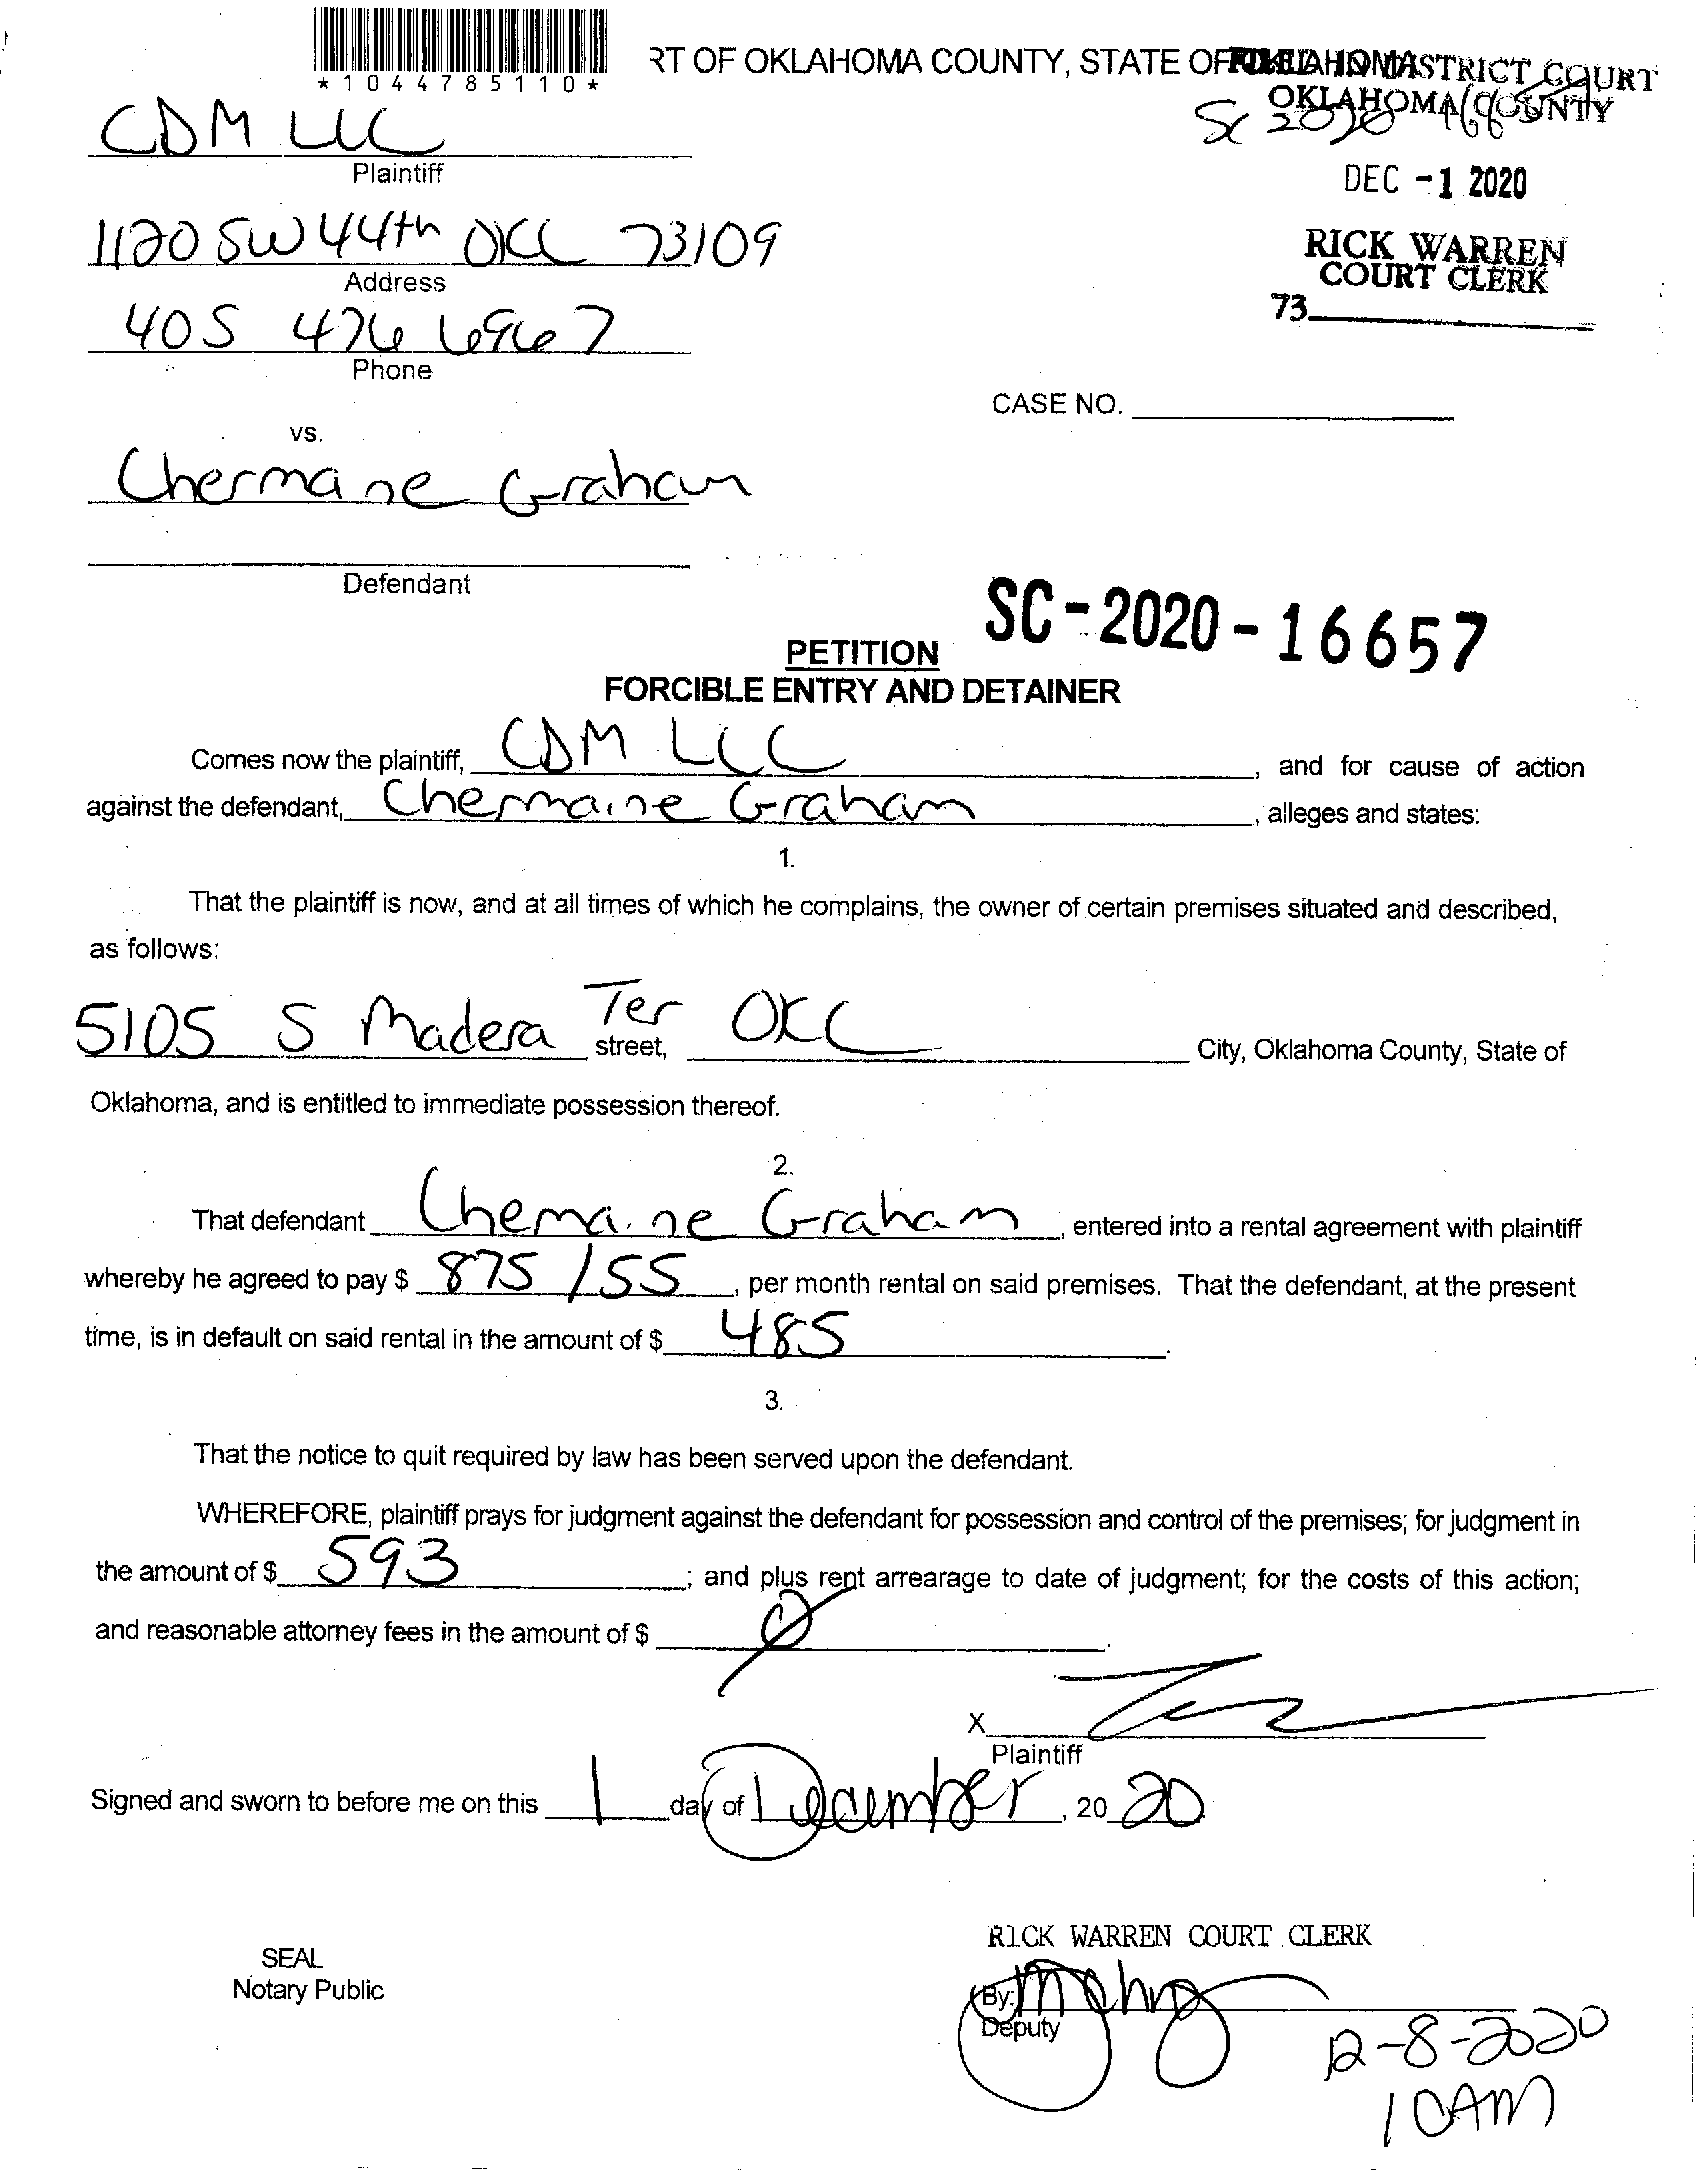 *1044785110*
RT OF OKLAHOMA COUNTY, STATE OF OKLAHOMA
FILED IN DISTRICT COURT
OKLAHOMA COUNTY
SC 2020
DEC -1 2020
RICK WARREN
COURT CLERK
73
CDM LLC
Plaintiff
1120 SW 44th OKC 73109
Address
405 476 6967
Phone
CASE NO.
vs.
Chermaine Graham
Defendant
SC-2020-16657
PETITION
FORCIBLE ENTRY AND DETAINER
Comes now the plaintiff, CDM LLC, and for cause of action
against the defendant, Chermaine Graham, alleges and states:
1.
That the plaintiff is now, and at all times of which he complains, the owner of certain premises situated and described,
as follows:
5105 S Madera Ter street, OKC City, Oklahoma County, State of
Oklahoma, and is entitled to immediate possession thereof.
2.
That defendant Chemaine Graham, entered into a rental agreement with plaintiff
whereby he agreed to pay $ 875 / 55, per month rental on said premises. That the defendant, at the present
time, is in default on said rental in the amount of $ 485.
3.
That the notice to quit required by law has been served upon the defendant.
WHEREFORE, plaintiff prays for judgment against the defendant for possession and control of the premises; for judgment in
the amount of $ 593; and plus rent arrearage to date of judgment; for the costs of this action;
and reasonable attorney fees in the amount of $ 0.
X
Plaintiff
Signed and sworn to before me on this 1 day of December, 2020
RICK WARREN COURT CLERK
SEAL
Notary Public
By:
Deputy
12-8-2020
10AM